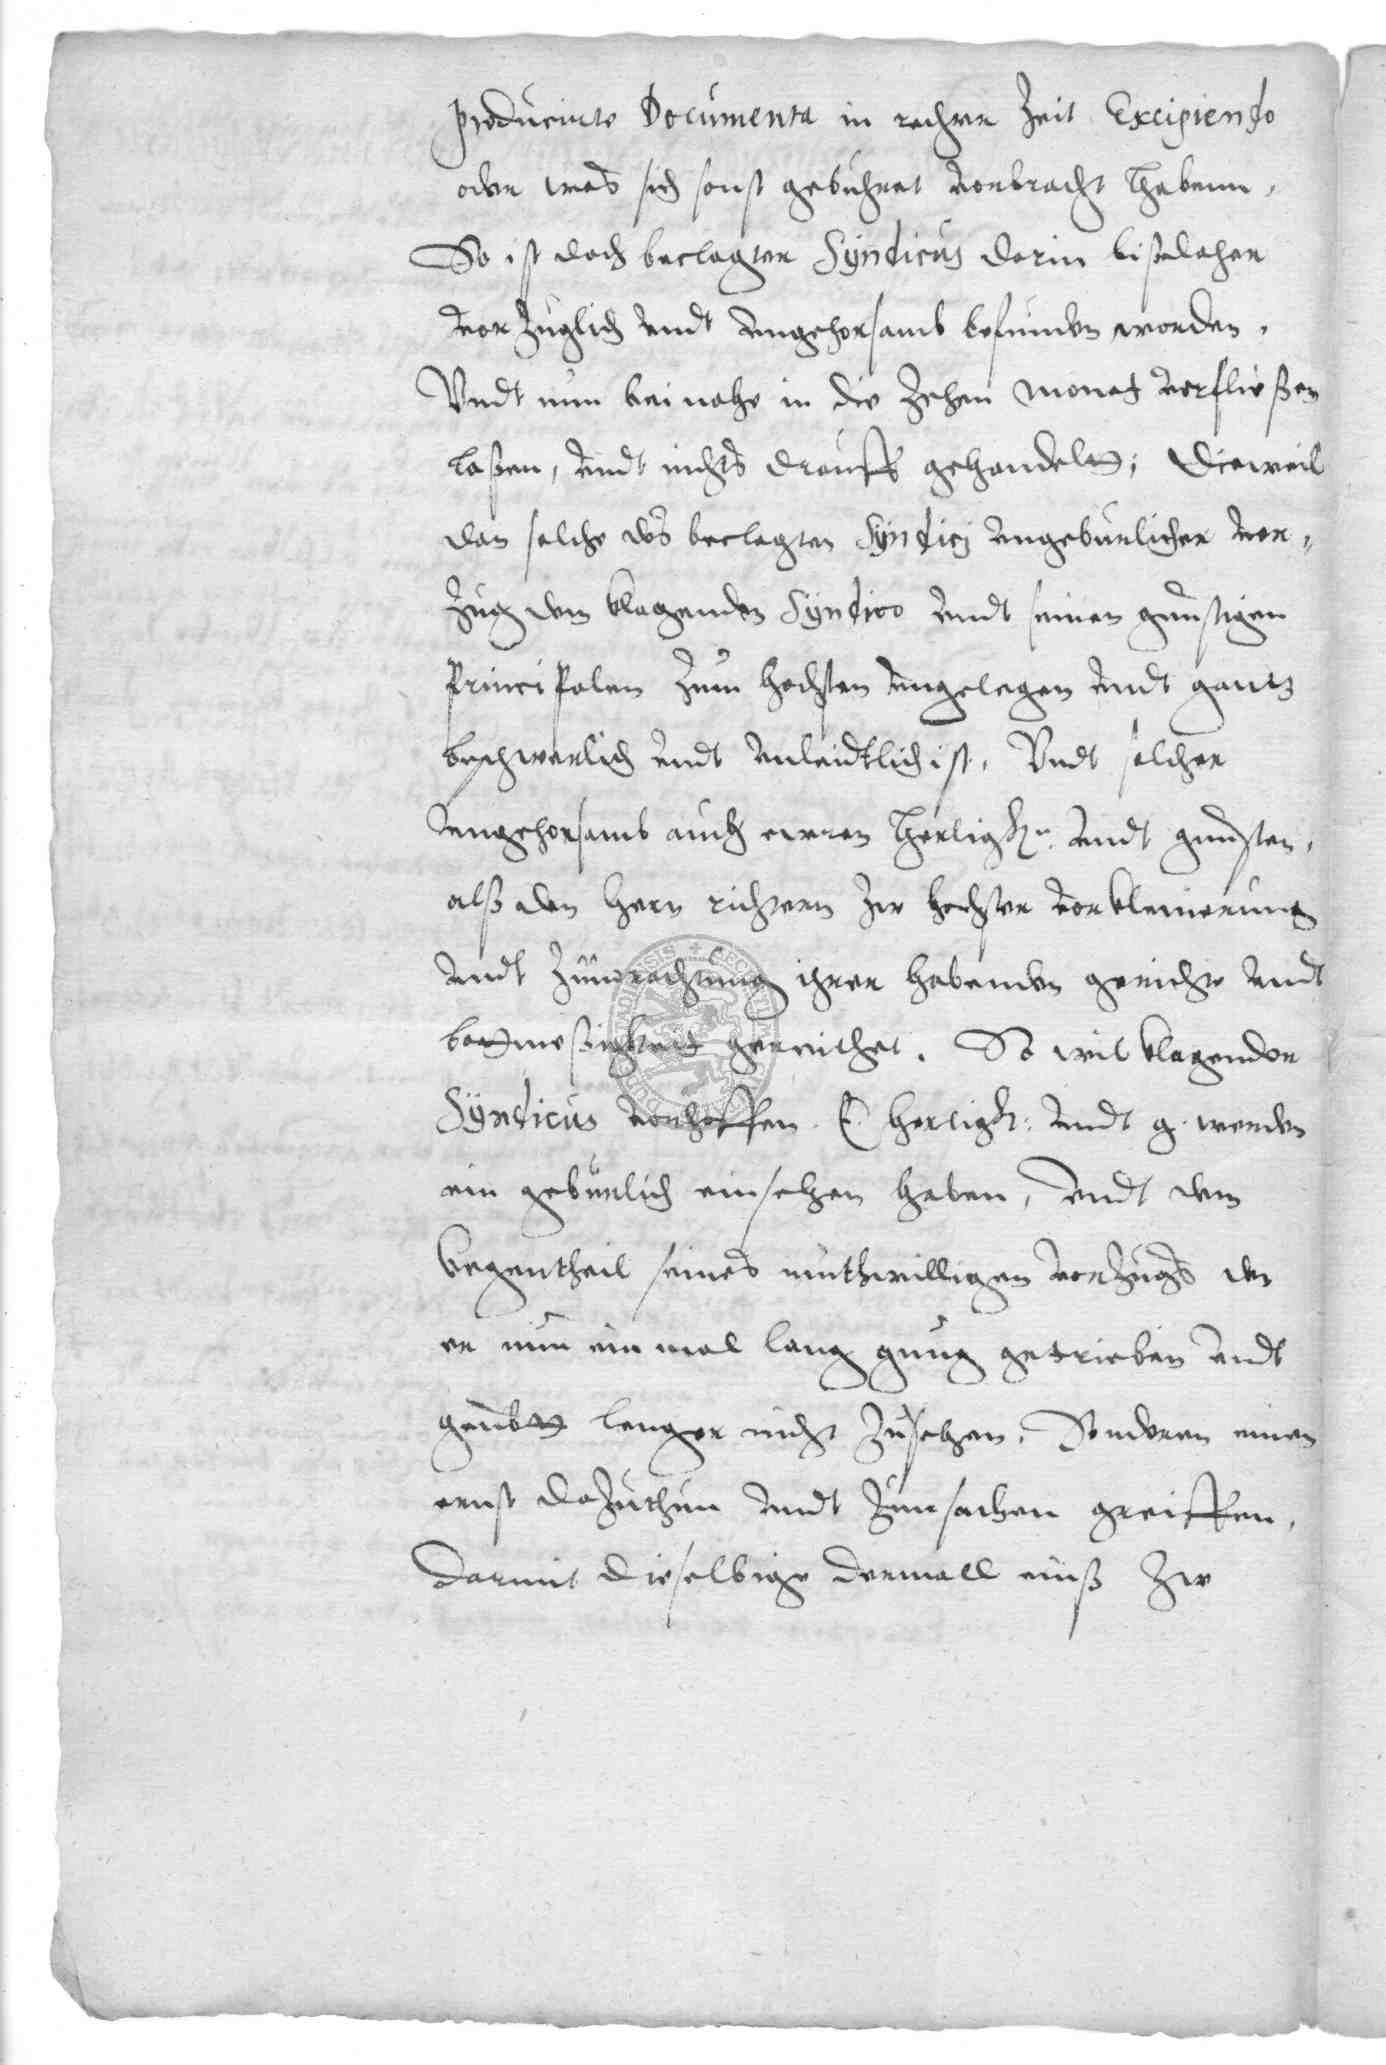 producirte Documenta in rechter Zeit Excipiendo
oder was sich sonst gebuhret vorbracht habenn,
So ist doch beclagter Syndicus darin biß daher
vorzuglich undt ungehorsamb befunden worden,
Vndt nun bei nahe in die Zehen monat verfließen
laßen, undt nichts drauff gehandelt, Dieweil
dan solche des beclagten Syndicj ungeburlicher vor-
zug dem klagenden Syndico undt seinen gunstigen
Principalen zum hochsten ungelegen undt gantz
beschwerlich undt unleidtlich ist, Vndt solcher
ungehorsamb auch ewren herligk. undt gunsten,
alß den hern richtern zu hochster vorkleinerung
undt Zuvorachtung ihrer habenden gericht undt
botmeßigkeit gereichet. So wil klagender
Syndicus vorhoffen E. herligk: undt g. werden
ein geburlich einsehen haben, undt dem
kegentheil seines muthwilligen vorzugs den
er nun ein mal lang gnug getrieben undt
geubtt lenger nicht zusehen, Sonderen einen
ernst dazuthun undt zun sachen greiffen,
Darmit dieselbige dermall einß zu